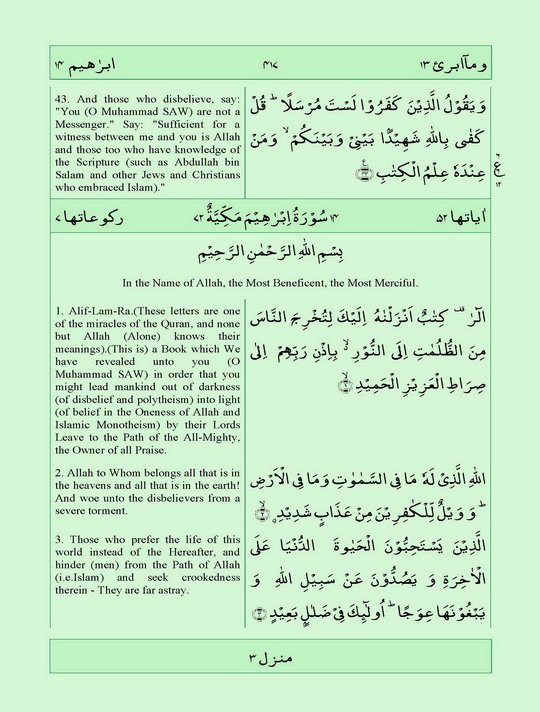 ابرٰهیم ۱۴ ۴۱۷ ومآابرئ ۱۳
43. And those who disbelieve, say:
"You (O Muhammad SAW) are not a
Messenger." Say: "Sufficient for a
witness between me and you is Allah
and those too who have knowledge of
the Scripture (such as Abdullah bin
Salam and other Jews and Christians
who embraced Islam)."
وَيَقُوْلُ الَّذِيْنَ كَفَرُوْا لَسْتَ مُرْسَلًا ؕ قُلْ
كَفٰى بِاللّٰهِ شَهِيْدًۢا بَيْنِيْ وَبَيْنَكُمْ ۙ وَمَنْ
عِنْدَهٗ عِلْمُ الْكِتٰبِ ﴿۴۳﴾
اٰیاتها ۵۲ ۱۴ سُوْرَةُ اِبْرٰهِيْمَ مَكِّيَّةٌ ۷۲ رکوعاتها ۷
بِسْمِ اللّٰهِ الرَّحْمٰنِ الرَّحِيْمِ
In the Name of Allah, the Most Beneficent, the Most Merciful.
1. Alif-Lam-Ra.(These letters are one
of the miracles of the Quran, and none
but Allah (Alone) knows their
meanings).(This is) a Book which We
have revealed unto you (O
Muhammad SAW) in order that you
might lead mankind out of darkness
(of disbelief and polytheism) into light
(of belief in the Oneness of Allah and
Islamic Monotheism) by their Lords
Leave to the Path of the All-Mighty,
the Owner of all Praise.
الٓرٰ ۫ كِتٰبٌ اَنْزَلْنٰهُ اِلَيْكَ لِتُخْرِجَ النَّاسَ
مِنَ الظُّلُمٰتِ اِلَى النُّوْرِ ۙ بِاِذْنِ رَبِّهِمْ اِلٰى
صِرَاطِ الْعَزِيْزِ الْحَمِيْدِ ﴿۱﴾
2. Allah to Whom belongs all that is in
the heavens and all that is in the earth!
And woe unto the disbelievers from a
severe torment.
اللّٰهِ الَّذِيْ لَهٗ مَا فِي السَّمٰوٰتِ وَمَا فِي الْاَرْضِ
ؕ وَ وَيْلٌ لِّلْكٰفِرِيْنَ مِنْ عَذَابٍ شَدِيْدِ ﴿۲﴾
3. Those who prefer the life of this
world instead of the Hereafter, and
hinder (men) from the Path of Allah
(i.e.Islam) and seek crookedness
therein - They are far astray.
الَّذِيْنَ يَسْتَحِبُّوْنَ الْحَيٰوةَ الدُّنْيَا عَلَى
الْاٰخِرَةِ وَ يَصُدُّوْنَ عَنْ سَبِيْلِ اللّٰهِ وَ
يَبْغُوْنَهَا عِوَجًا ؕ اُولٰٓئِكَ فِيْ ضَلٰلٍۭ بَعِيْدٍ ﴿۳﴾
منزل ۳